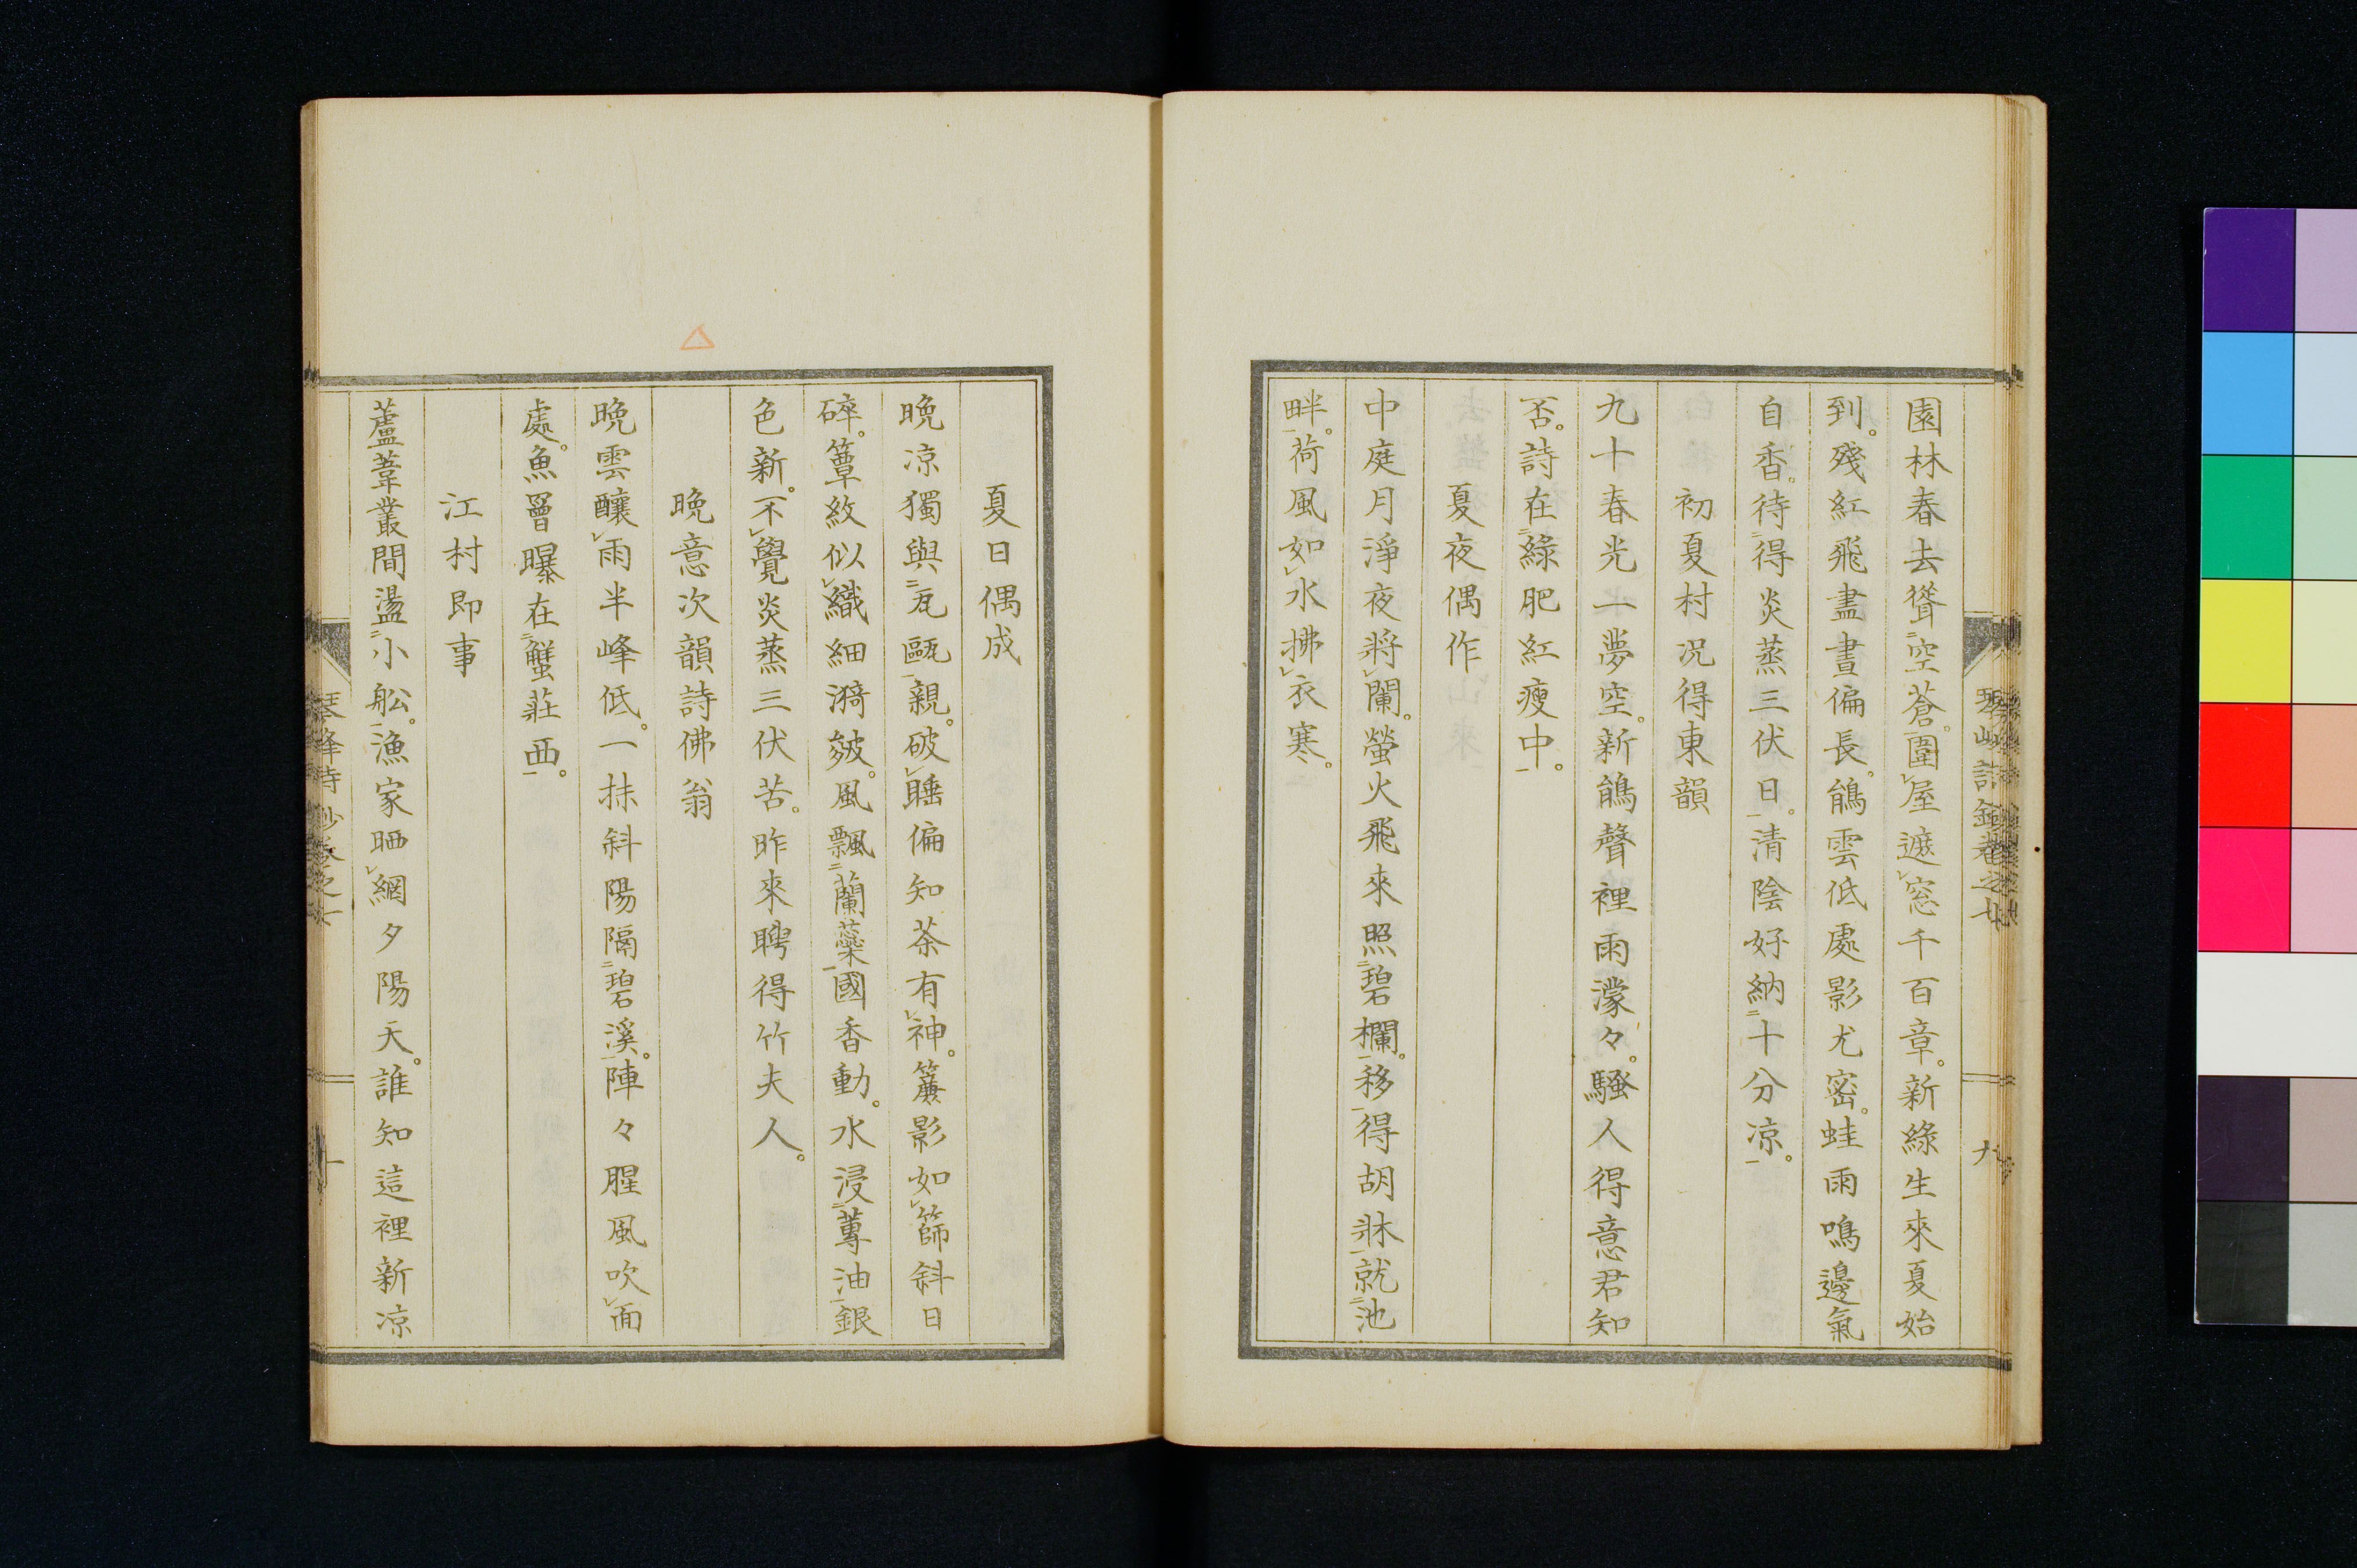 園林春去聳空蒼。圍屋遮窓千百章。新綠生來夏始
到。殘紅飛盡晝偏長。鵃雲低處影尤密。蛙雨鳴邊氣
自香。待得炎蒸三伏日。清陰好納十分凉。
初夏村況得東韻
九十春光一夢空。新鵃聲裡雨濛々。騷人得意君知
否。詩在綠肥紅瘦中。
夏夜偶作
中庭月淨夜將闌。螢火飛來照碧欄。移得胡牀就池
畔。荷風如水拂衣寒。
九
夏日偶成
晩凉獨與瓦甌親。破睡偏知茶有神。簾影如篩斜日
碎。簟紋似織細漪皴。風飄蘭蘂國香動。水浸蓴油銀
色新。不覺炎蒸三伏苦。昨來聘得竹夫人。
晩意次韻詩佛翁
晩雲釀雨半峰低。一抹斜陽隔碧溪。陣々腥風吹面
處。魚罾曝在蟹莊西。
江村即事
蘆葦叢間盪小舩。漁家晒網夕陽天。誰知這裡新凉
琴峰詩鈔卷之七